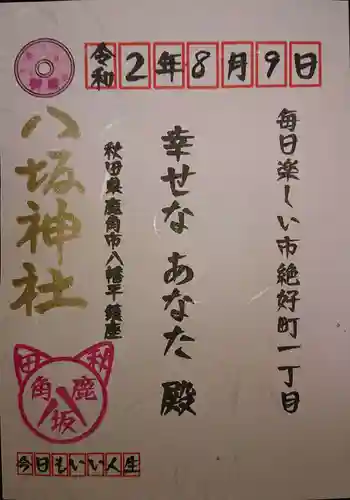 令和2年8月9日
毎日楽しい市絶好町一丁目
幸せな あなた 殿
秋田県鹿角市八幡平鎮座
八坂神社
秋田
鹿角
八坂
今日もいい人生